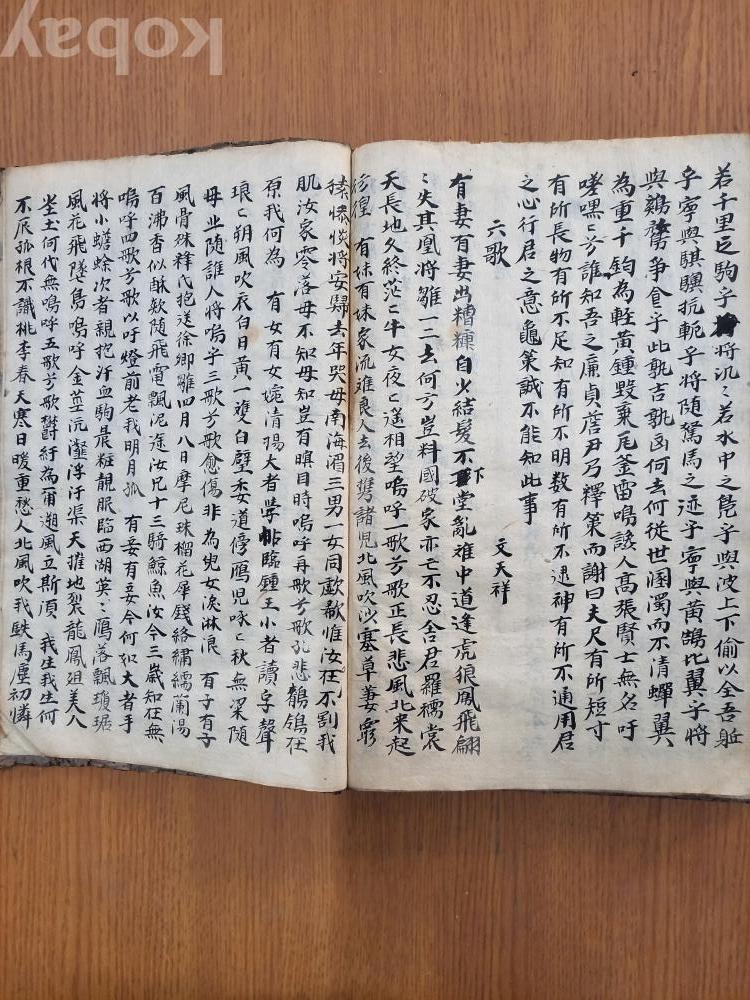 若千里之駒乎將汎〻若水中之鳧乎與波上下偷以全吾軀
乎寧與騏驥抗軛乎將随駑馬之迹乎寧與黃鵠比翼乎將
與鷄鶩爭食乎此孰吉孰凶何去何從世溷濁而不清蟬翼
為重千鈞為軽黃鍾毀棄瓦釜雷鳴諓人髙張賢士無名吁
嗟嘿〻兮誰知吾之廉貞詹尹乃釋策而謝曰夫尺有所短寸
有所長物有所不足知有所不明数有所不逮神有所不通用君
之心行君之意龜策誠不能知此事
六歌
文天祥
有妻有妻出糟糠自少結髮不下堂亂離中道逢虎狼鳳飛翩
〻失其凰將雛一二去何方豈料國破家亦亡不忍舍君羅襦裳
天長地久終茫〻牛女夜〻遥相望嗚呼一歌兮歌正長悲風北来起
彷徨 有妹有妹家流離良人去後携諸児北風吹沙塞草萋窮
猿惨惔將安歸去年哭母南海湄三男一女同歔欷惟汝在不割我
肌汝家零落母不知母知豈有瞑目時嗚呼再歌兮歌孔悲鶺鴒在
原我何為 有女有女婉清揚大者學帖臨鍾王小者讀字聲
琅〻朔風吹衣白日黃一雙白璧委道傍鴈児啄〻秋無粱随
母北随誰人將嗚呼三歌兮歌愈傷非為兒女淚淋浪 有子有子
風骨殊釋氏抱送徐卿雛四月八日摩尼珠榴花犀錢絡繡繻蘭湯
百沸香似酥欻随飛電飄泥途汝兄十三騎鯨魚汝今三歲知在無
嗚呼四歌兮歌以吁燈前老我明月孤 有妾有妾今何如大者手
將小蟾蜍次者親抱汗血駒晨粧靚服臨西湖英〻鴈落飄瓊琚
風花飛墜鳥嗚呼金莖沆瀣浮汙渠天摧地裂龍鳳殂美人
塵土何代無嗚呼五歌兮歌欝紆為爾遡風立斯須 我生我生何
不辰孤根不識桃李春天寒日暖重愁人北風吹我鉄馬塵初憐
kobay